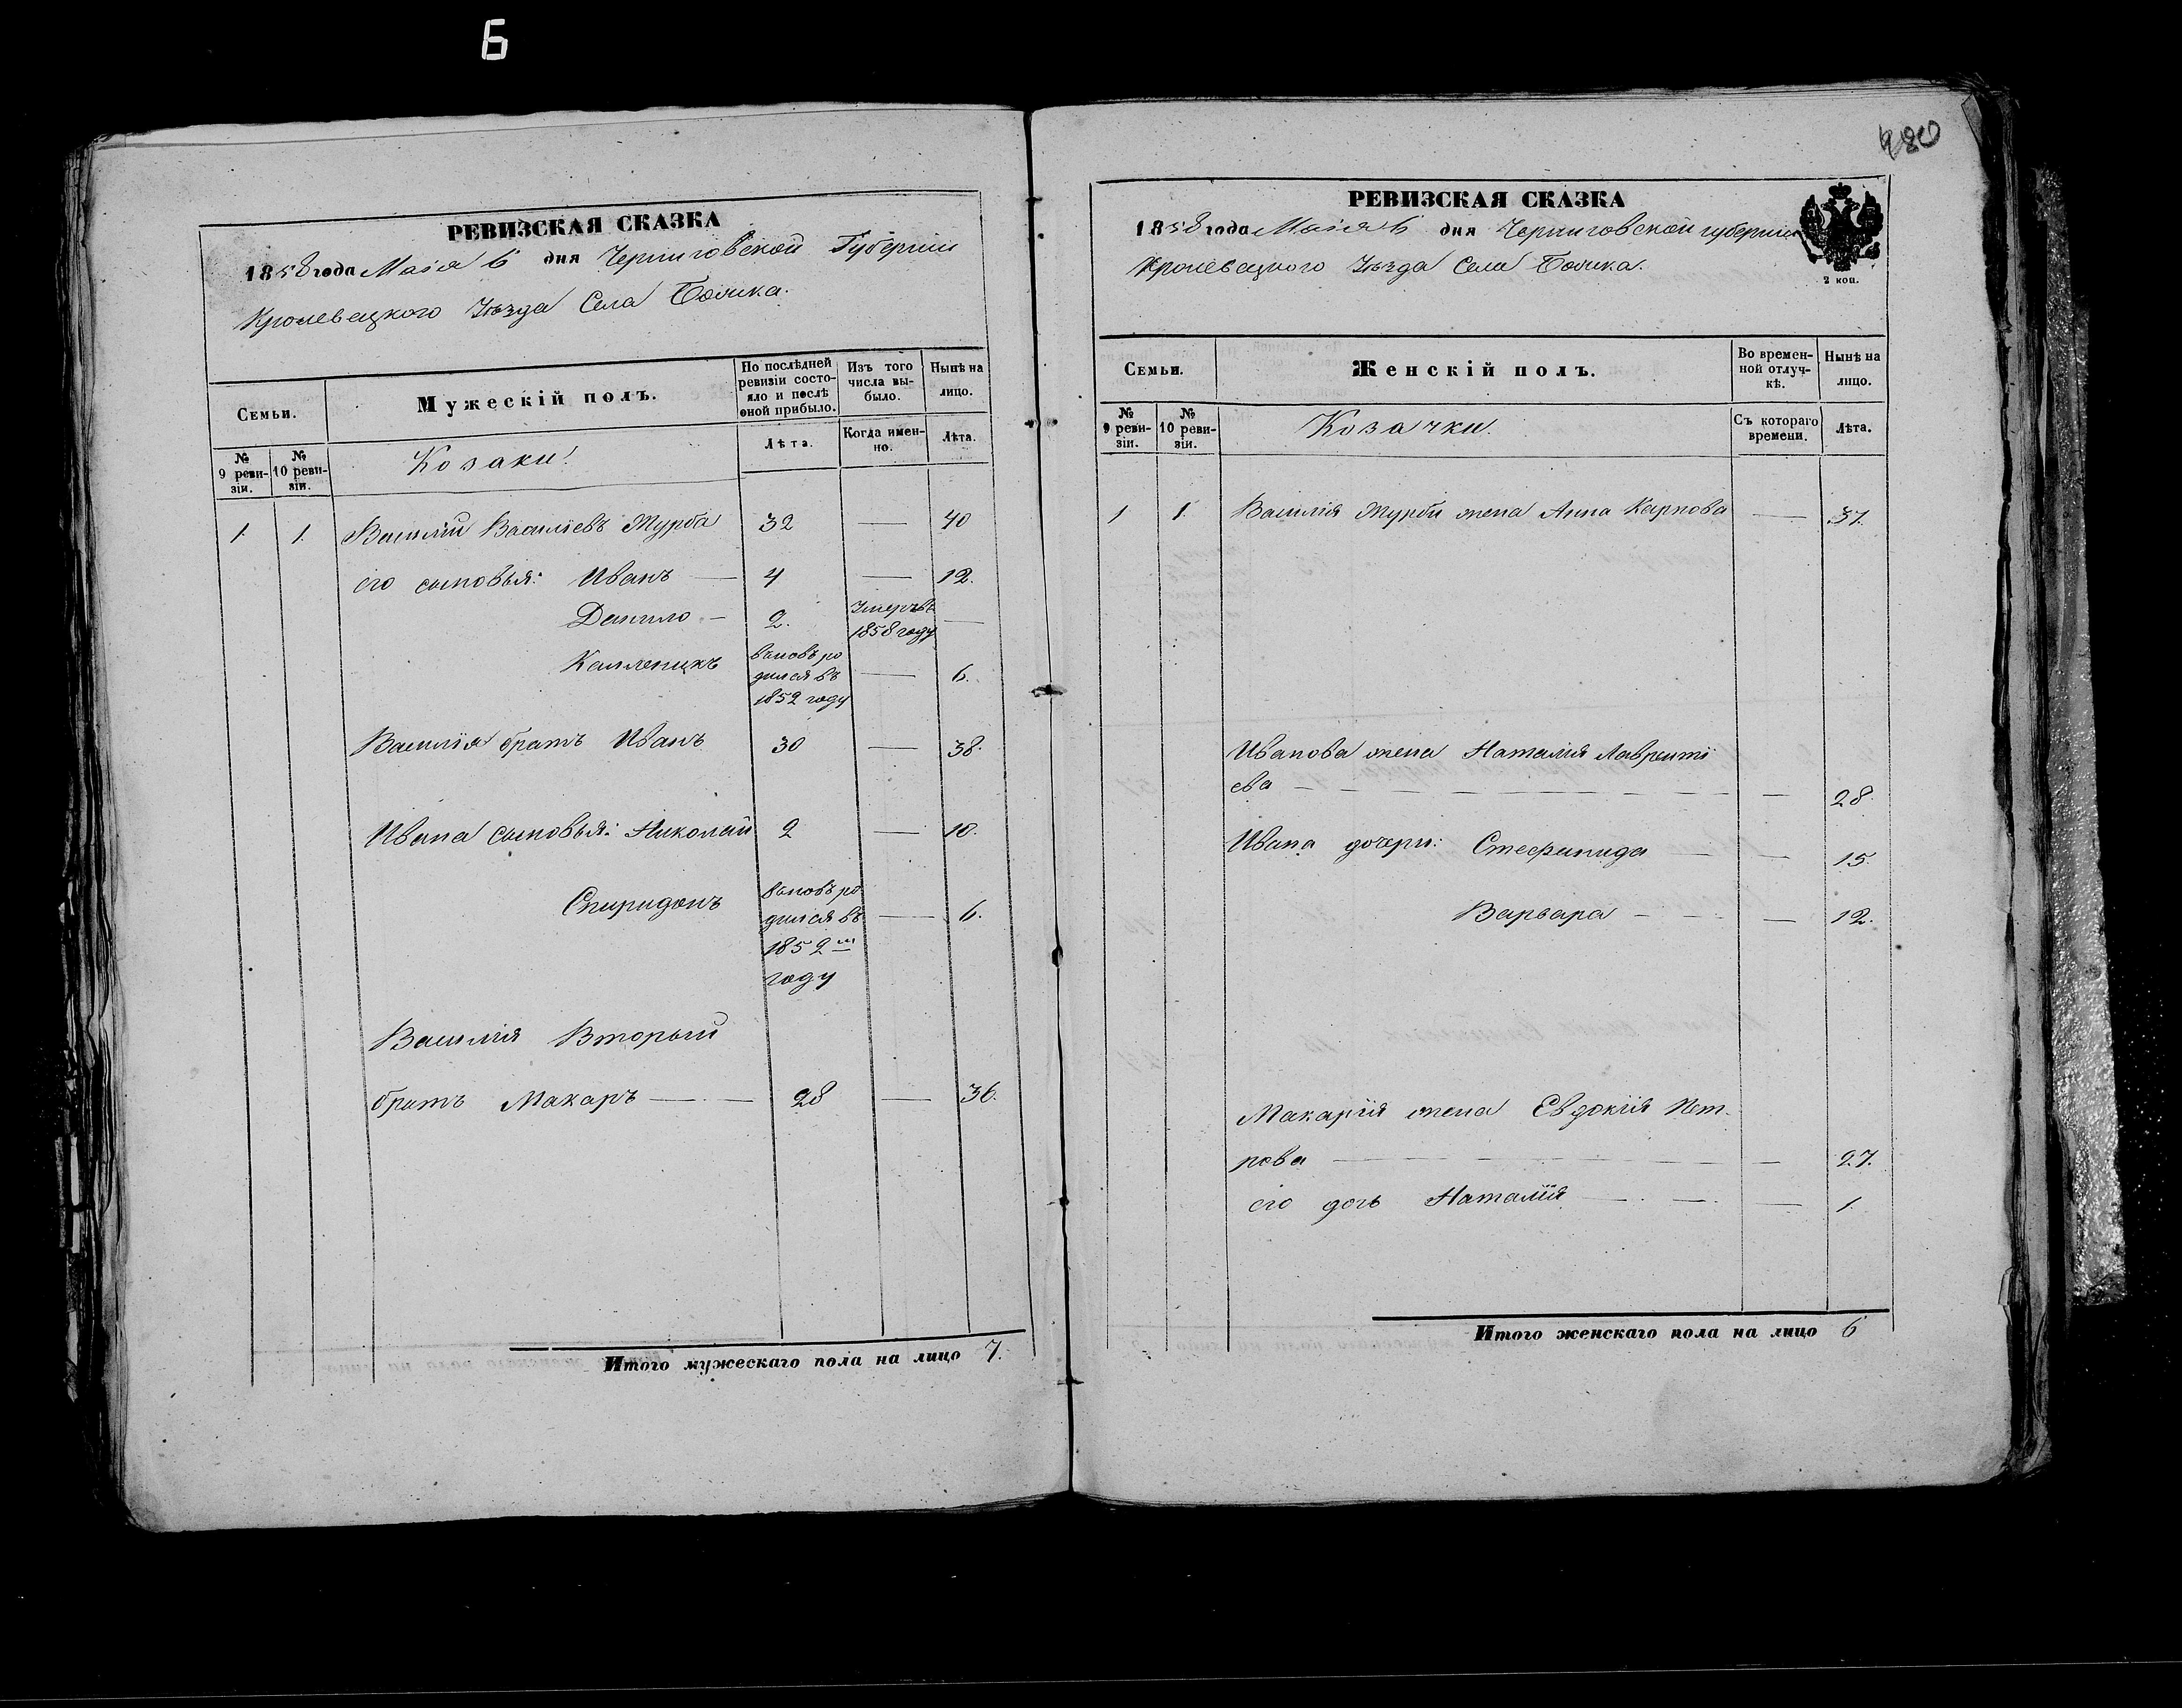 Б
РЕВИЗСКАЯ СКАЗКА
1858 года Маія 6 дня Черниговской Губерніи
Кролевецкого Уѣзда Села
Семьи.
Мужескій полъ.
По послѣдней ревизіи состояло и послѣ оной прибыло.
Изъ того числа выбыло.
Нынѣ на лицо.
№ 9 ревизіи.
№ 10 ревизіи.
Козаки.
Лѣта.
Когда именно.
Лѣта.
1. 1. Василій Васильевъ Журба 32 — 40
его сыновья: Иванъ — 4 — 12.
Данило — 2. Умеръ въ 1858 году —
Каленикъ вновь родился въ 1852 году — 6.
Василія братъ Иванъ 30 — 38.
Ивана сыновья: Николай 2 — 10.
Спиридонъ вновь родился въ 1852 м году — 6.
Василія Вторый
братъ Макаръ — 28 — 36.
Итого мужескаго пола на лицо 7.
480
РЕВИЗСКАЯ СКАЗКА
1858 года Маія 6 дня Черниговской губерніи
Кролевецкого Уѣзда Села
2 коп.
Семьи.
Женскій полъ.
Во временной отлучкѣ.
Нынѣ на лицо.
№ 9 ревизіи.
№ 10 ревизіи.
Козачки.
Съ котораго времени.
Лѣта.
1 1. Василія Журбы жена Анна Карпова — 37.
Иванова жена Наталія Лавренті
ева — — 28.
Ивана дочери: Стефанида — — 15.
Варвара — — 12.
Макарія жена Евдокія Пет-
рова — — 27.
его дочь Наталія — — 1.
Итого женскаго пола на лицо 6